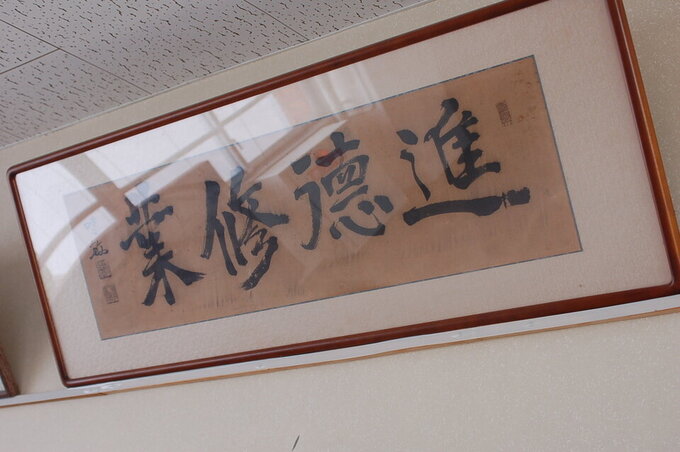 進德修業